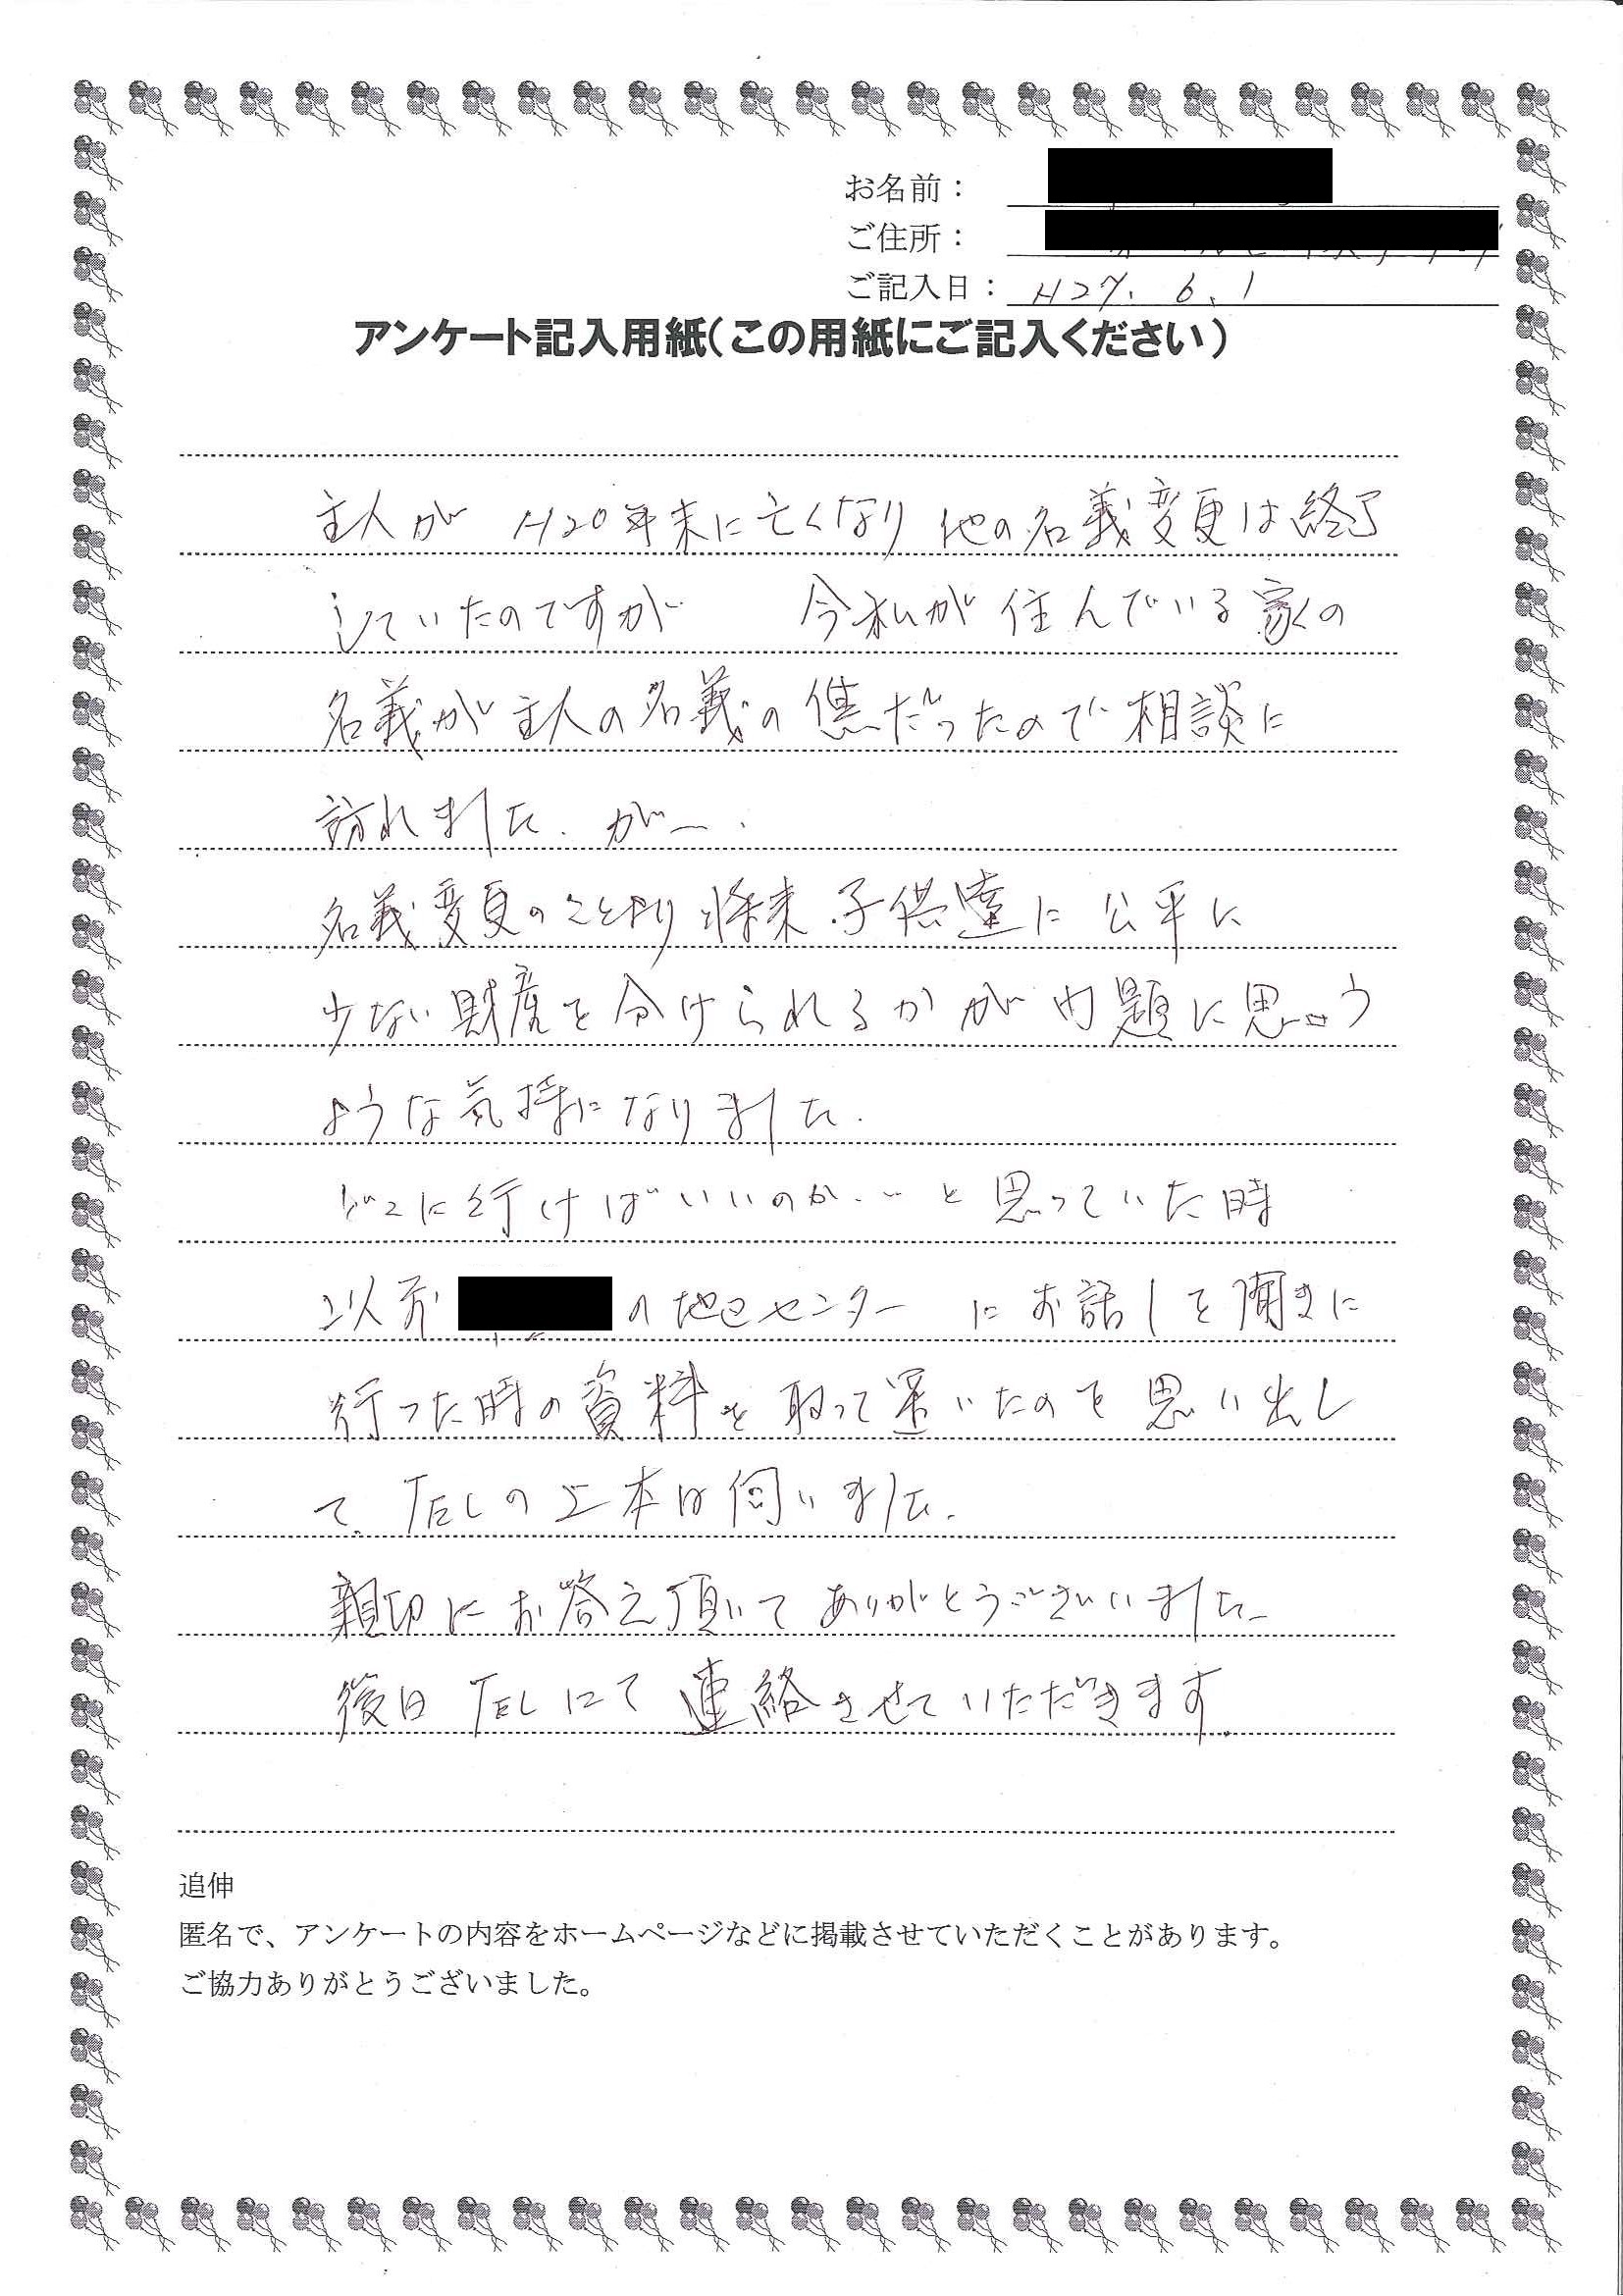 お名前：
ご住所：
ご記入日： H27. 6. 1
アンケート記入用紙（この用紙にご記入ください）
主人が H20年末に亡くなり 他の名義変更は終了
していたのですが 今私が住んでいる家の
名義が主人の名義の侭だったので相談に
訪れました．が―．
名義変更のことより将来．子供達に公平に
少ない財産を分けられるかが問題に思う
ような気持になりました．
どこに行けばいいのか…と思っていた時
以前 の地区センター にお話しを聞きに
行った時の資料を取って置いたのを思い出し
て、TELの上本は伺いました．
親切にお答え頂いてありがとうございいました
後日TELにて連絡させていただきます．
追伸
匿名で、アンケートの内容をホームページなどに掲載させていただくことがあります。
ご協力ありがとうございました。